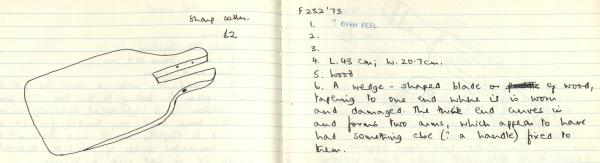 Sharp
£2
F 232 '73
1. ? OVEN PEEL
2.
3.
4. L. 43 cm; W. 20.7cm.
5. Wood
6. A wedge-shaped blade of wood,
tapering to one end where it is worn
and damaged. The thick end curves in
and forms two arms, which appear to have
had something else (? a handle) fixed to
them.